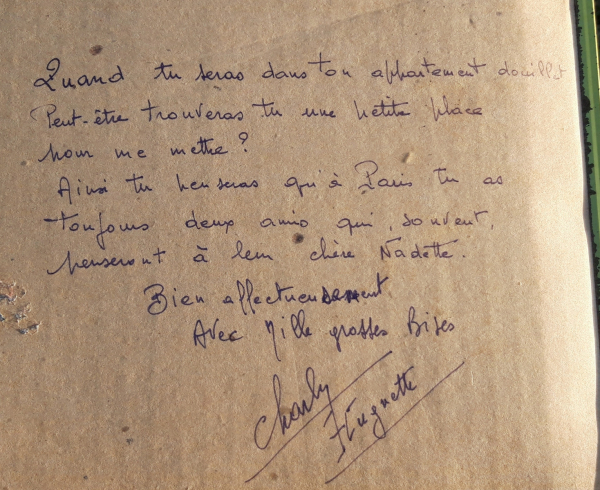 Quand tu seras dans ton appartement douillet
Peut-être trouveras tu une petite place
pour me mettre ?
Ainsi tu penseras qu'à Paris tu as
toujours deux amis qui, souvent,
penseront à leur chère Nadette.
Bien affectueusement
Avec Mille grosses Bises
Charly
Huguette